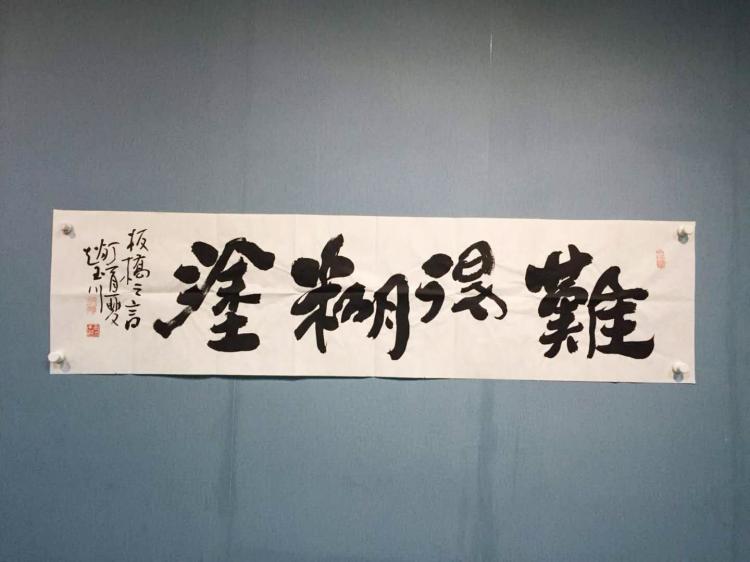 難得糊塗
板橋之言
趙玉川